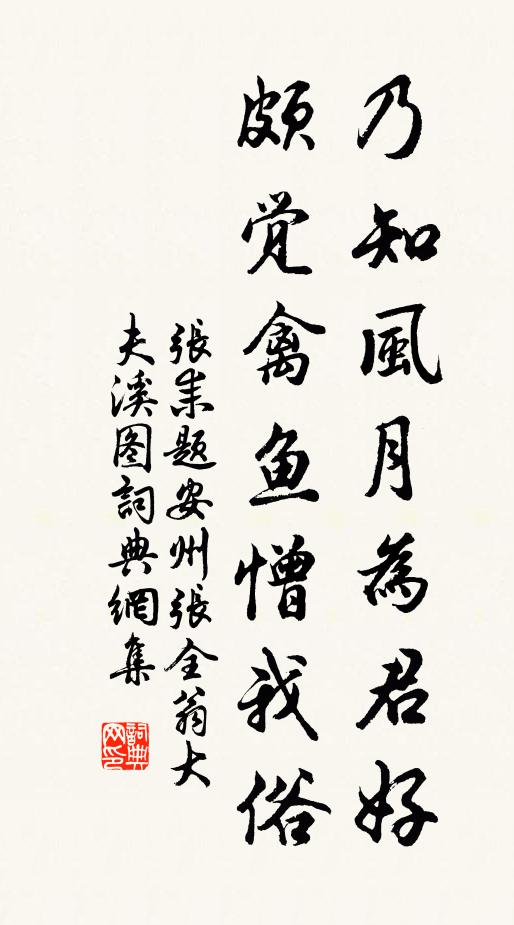 乃知風月為君好
頗觉禽鱼憎我俗
張耒题安州張全翁大
夫溪图詞典網集
詞典
网印